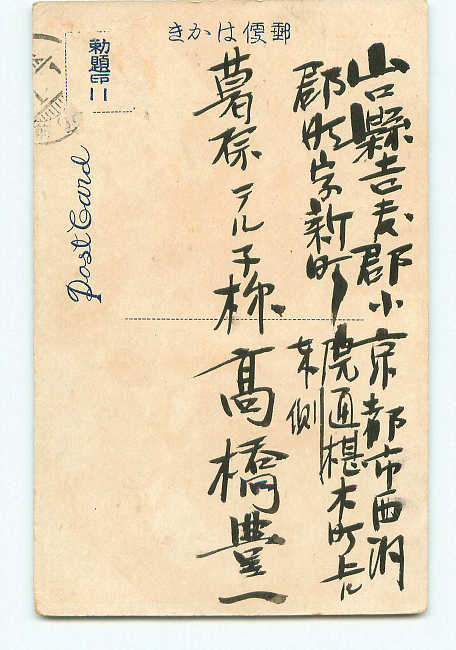 郵便はかき
勅題
Post Card
山口縣吉敷郡小
郡町字新町
葛原テル子様
京都市西洞
院通椹木町上ル
東側
高橋豊一